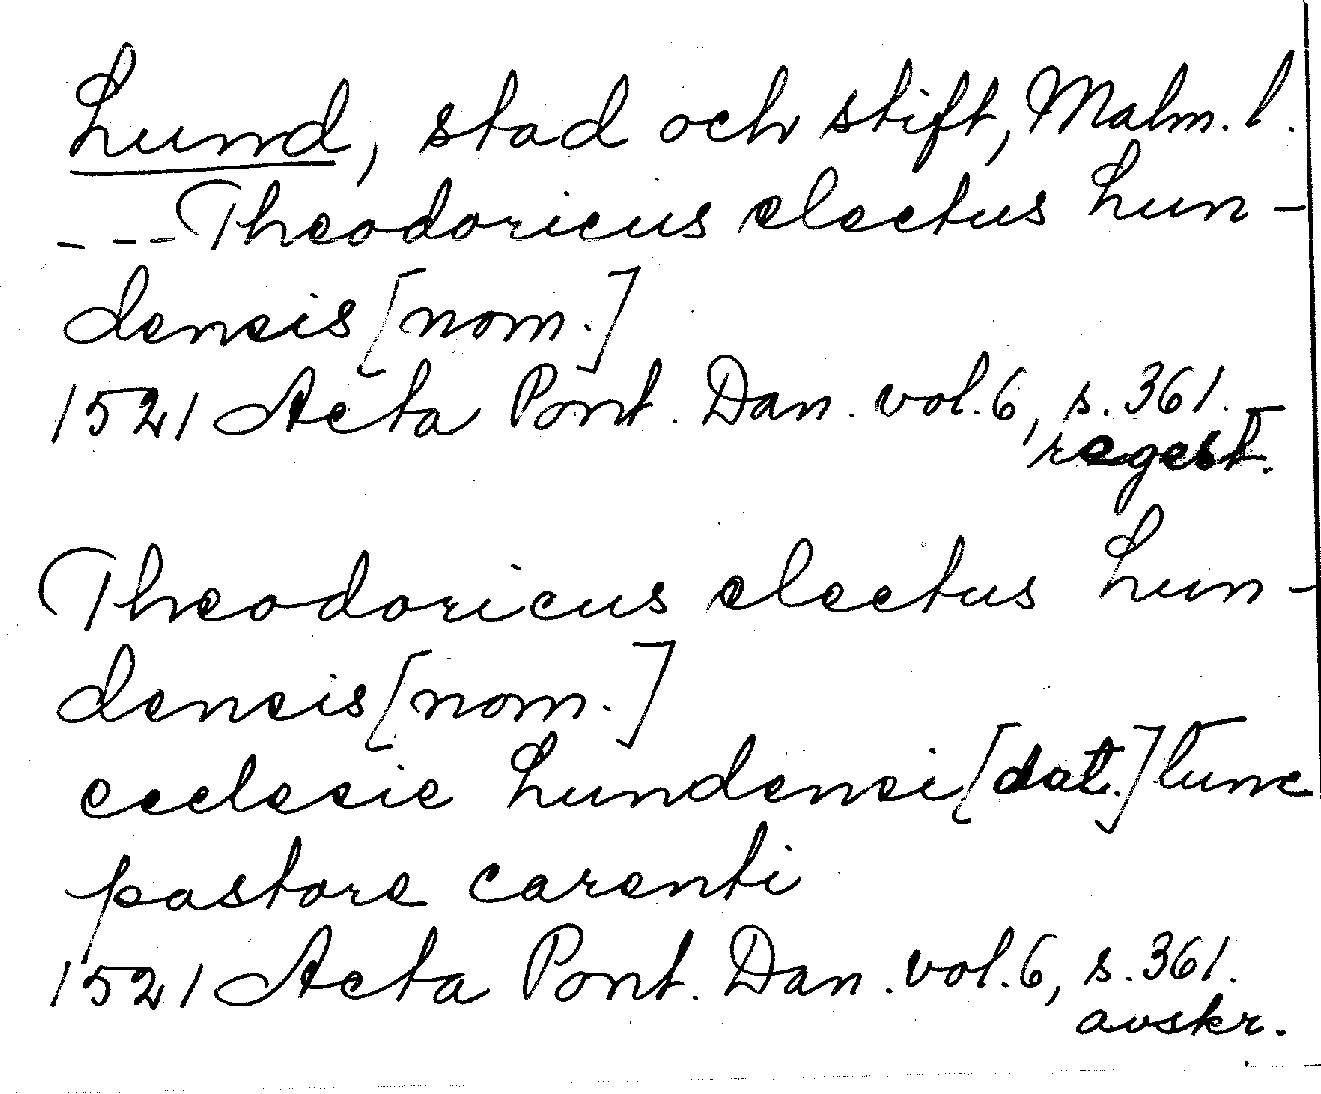 Lund, stad och stift, Malm. l.
---Theodoricus electus Lun-
densis [nom.]
1521 Acta Pont. Dan. vol. 6, s. 361.
regest.
Theodoricus electus Lun-
densis [nom.]
ecclesie Lundensi [dat.] tunc
pastore carenti
1521 Acta Pont. Dan. vol. 6, s. 361.
avskr.